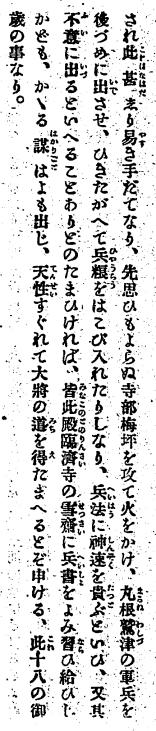 され此甚より易き手だてなり、先思ひもよらぬ寺部梅坪を攻て火をかけ、丸根鷲津の軍兵を
後づめに出させ、ひきたがへて兵粮をはこび入れたりしなり、兵法に神速を貴ぶといひ、又其
不意に出るといへることありとのたまひければ、皆此殿臨濟寺の雪齋に兵書をよみ習ひ給ひし
かども、かゝる謀はよも出じ、天性すぐれて大將の道を得たまへるとぞ申ける、此十八の御
歳の事なり。